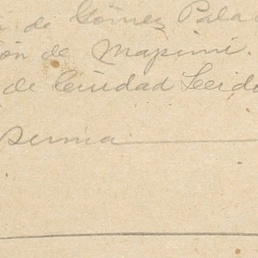 de Gómez Pala
ón de Mapimí.
de Ciudad Lerdo